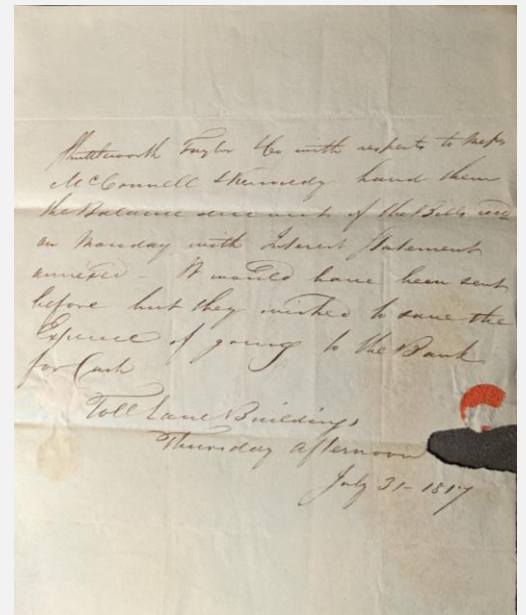 Shuttleworth Taylor & Co with respects to Messrs
McConnell & Kennedy hand them
the Balance due out of the Bills
on Monday with Interest Statement
annexed - It would have been sent
before but they wished to save the
Expence of going to the Bank
for Cash
Toll Lane Buildings
Thursday Afternoon
July 31 - 1817